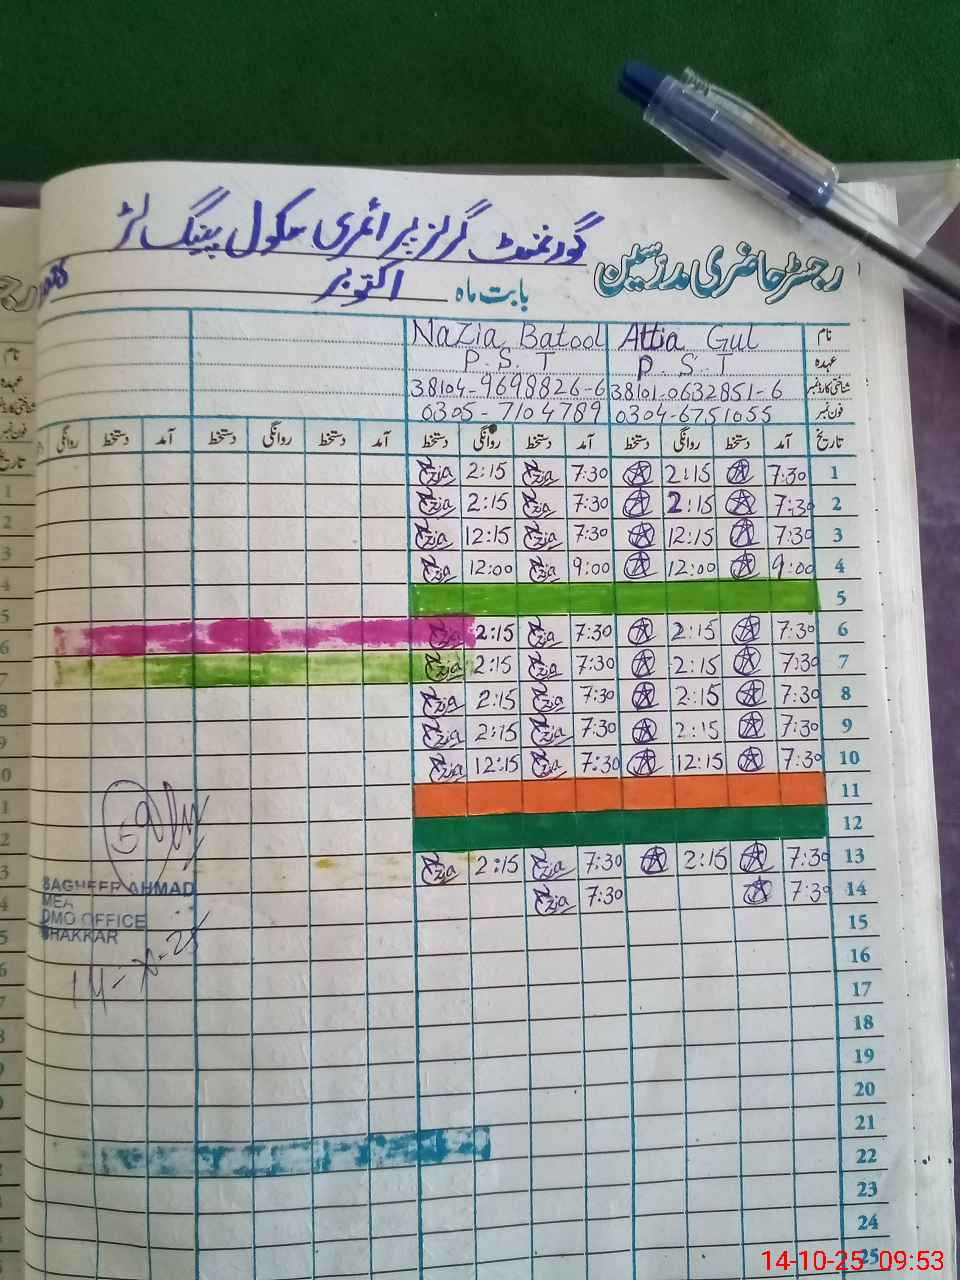 رجسٹر حاضری مدرسین
گورنمنٹ گرلز پرائمری سکول
بابت ماہ اکتوبر
نام Attia Gul Nazia Batool
عہدہ P.S.T P.S.T
شناختی کارڈ نمبر 38101-0632851-6 38104-9698826-6
فون نمبر 0304-6751055 0305-7104789
تاریخ آمد دستخط روانگی دستخط آمد دستخط روانگی دستخط آمد دستخط روانگی دستخط آمد دستخط روانگی
1 7:30 2:15 7:30 2:15
2 7:30 2:15 7:30 2:15
3 7:30 12:15 7:30 12:15
4 9:00 12:00 9:00 12:00
5
6 7:30 2:15 7:30 2:15
7 7:30 2:15 7:30 2:15
8 7:30 2:15 7:30 2:15
9 7:30 2:15 7:30 2:15
10 7:30 12:15 7:30 12:15
11
12
13 7:30 2:15 7:30 2:15
14 7:30 7:30
15
16
17
18
19
20
21
22
23
24
25
SAGHEER AHMAD
MEA
DMO OFFICE
BHAKKAR
14-10-25 09:53